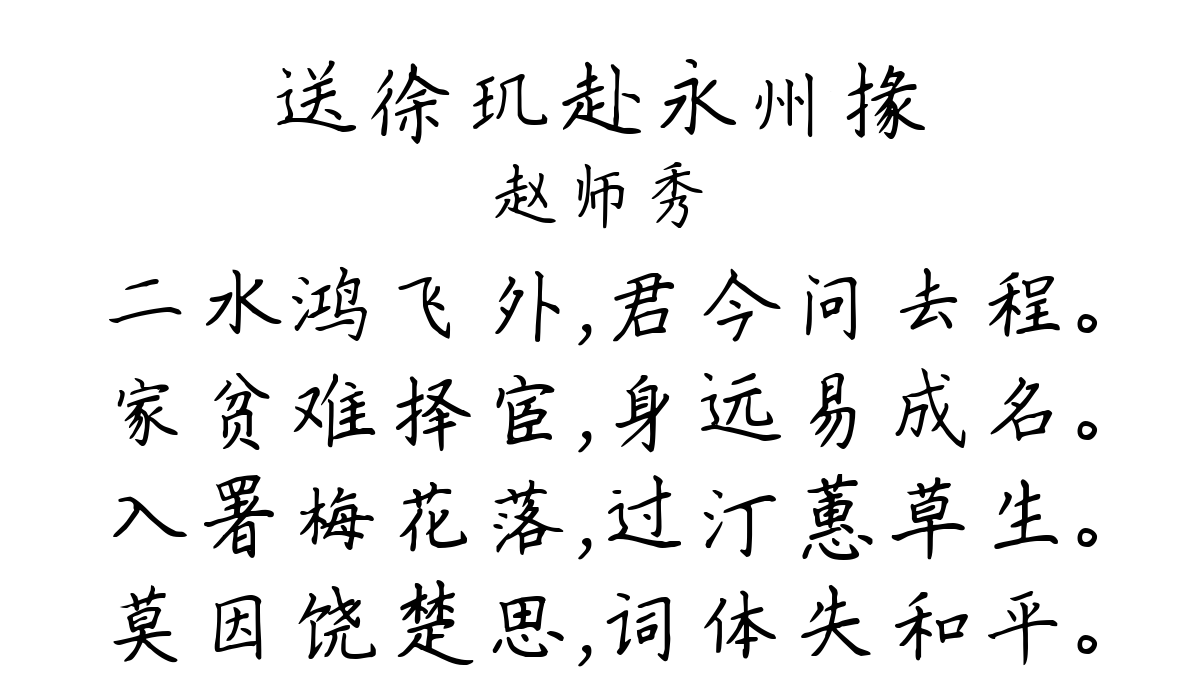 送徐玑赴永州掾
赵师秀
二水鸿飞外,君今问去程。
家贫难择宦,身远易成名。
入署梅花落,过汀蕙草生。
莫因饶楚思,词体失和平。